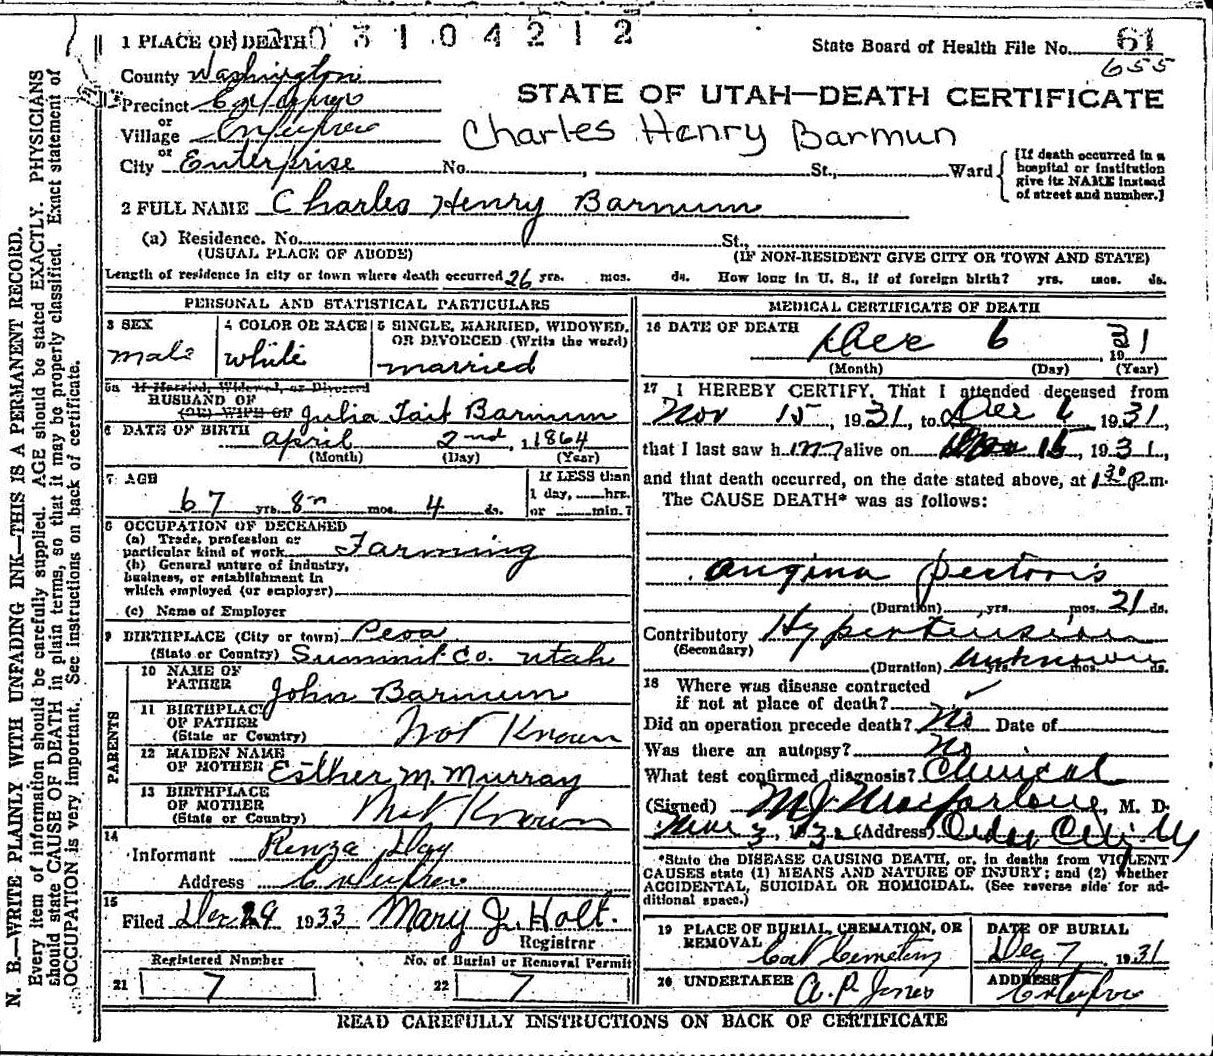 1 PLACE OF DEATH 0 3 1 0 4 2 1 2
State Board of Health File No. 61
655
County Washington
STATE OF UTAH—DEATH CERTIFICATE
Precinct Enterprise
or
Village Enterprise
Charles Henry Barmun
or
City Enterprise No. , St., Ward
[If death occurred in a hospital or institution give its NAME instead of street and number.]
2 FULL NAME Charles Henry Barnum
(a) Residence. No. St.,
(USUAL PLACE OF ABODE) (IF NON-RESIDENT GIVE CITY OR TOWN AND STATE)
Length of residence in city or town where death occurred 26 yrs. mos. ds. How long in U. S., if of foreign birth? yrs. mos. ds.
PERSONAL AND STATISTICAL PARTICULARS
3 SEX
male
4 COLOR OR RACE
white
5 SINGLE, MARRIED, WIDOWED, OR DIVORCED (Write the word)
married
5a If Married, Widowed, or Divorced
HUSBAND OF
(OR) WIFE OF Julia Tait Barnum
6 DATE OF BIRTH April 2nd, 1864
(Month) (Day) (Year)
7 AGE
67 yrs. 8 mos. 4 ds.
If LESS than
1 day, hrs.
or min.?
8 OCCUPATION OF DECEASED
(a) Trade, profession or
particular kind of work Farming
(b) General nature of industry,
business, or establishment in
which employed (or employer)
(c) Name of Employer
9 BIRTHPLACE (City or town) Peoa
(State or Country) Summit Co. Utah
PARENTS
10 NAME OF
FATHER John Barnum
11 BIRTHPLACE
OF FATHER
(State or Country) Not Known
12 MAIDEN NAME
OF MOTHER Esther M. Murray
13 BIRTHPLACE
OF MOTHER
(State or Country) Not Known
14
Informant Day
Address Enterprise
15
Filed Dec 29 1933 Mary J. Holt.
Registrar
Registered Number No. of Burial or Removal Permit
21 7 22 7
MEDICAL CERTIFICATE OF DEATH
16 DATE OF DEATH Dec 6 1931
(Month) (Day) (Year)
17 I HEREBY CERTIFY, That I attended deceased from
Nov 15, 1931, to Dec 6 1931,
that I last saw him alive on Nov 15, 1931,
and that death occurred, on the date stated above, at 1:30 P.m.
The CAUSE DEATH* was as follows:
Angina Pectoris
(Duration) yrs. mos. 21 ds.
Contributory Hypertension
(Secondary)
(Duration) unknown mos. ds.
18 Where was disease contracted
if not at place of death? ✓
Did an operation precede death? No Date of
Was there an autopsy? No
What test confirmed diagnosis? Clinical
(Signed) M J Macfarlane, M. D.
3, 1932 (Address) Cedar City, U
*State the DISEASE CAUSING DEATH, or, in deaths from VIOLENT
CAUSES state (1) MEANS AND NATURE OF INJURY; and (2) whether
ACCIDENTAL, SUICIDAL OR HOMICIDAL. (See reverse side for additional space.)
19 PLACE OF BURIAL, CREMATION, OR
REMOVAL Cemetery
DATE OF BURIAL
Dec 7 1931
20 UNDERTAKER A. P. Jones
ADDRESS
Enterprise
READ CAREFULLY INSTRUCTIONS ON BACK OF CERTIFICATE
N. B.—WRITE PLAINLY WITH UNFADING INK—THIS IS A PERMANENT RECORD.
Every item of information should be carefully supplied. AGE should be stated EXACTLY. PHYSICIANS
should state CAUSE OF DEATH in plain terms, so that it may be properly classified. Exact statement of
OCCUPATION is very important. See instructions on back of certificate.